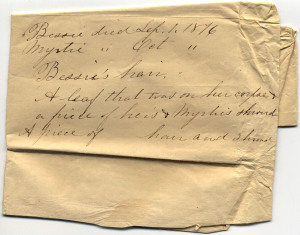 Bessie died Sep. 1. 1876
Myrtie " Oct "
Bessie's hair.
A leaf that was on her corpse &
a piece of hers & Myrtie's shroud
A piece of hair and